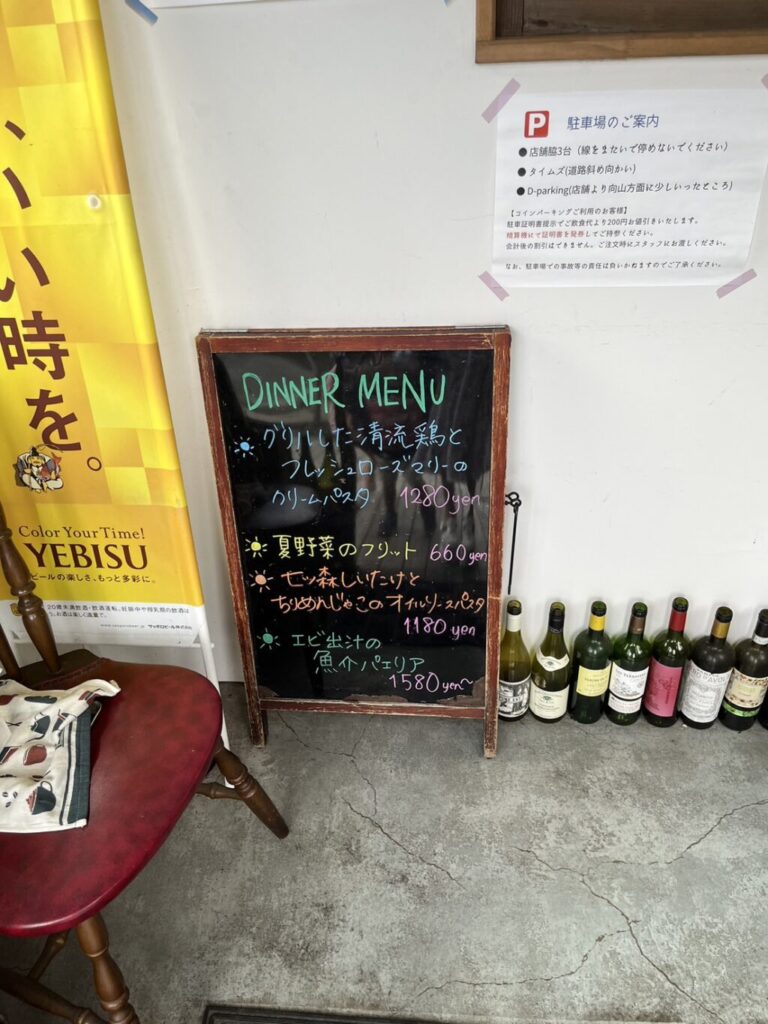 いい時を。
Color Your Time!
YEBISU
ビールの楽しさ、もっと多彩に。
サッポロビール株式会社
P 駐車場のご案内
● 店舗脇3台（線をまたいで停めないでください）
● タイムズ(道路斜め向かい)
● D-parking(店舗より向山方面に少しいったところ)
【コインパーキングご利用のお客様】
駐車証明書提示でご飲食代より200円お値引きいたします。
精算機にて証明書を発券してご持参ください。
会計後の割引はできません。ご注文時にスタッフにお渡しください。
なお、駐車場での事故等の責任は負いかねますのでご了承ください。
DINNER MENU
グリルした清流鶏と
フレッシュローズマリーの
クリームパスタ 1280yen
夏野菜のフリット 660yen
七ツ森しいたけと
ちりめんじゃこのオイルソースパスタ
1180yen
エビ出汁の
魚介パエリア
1580yen〜